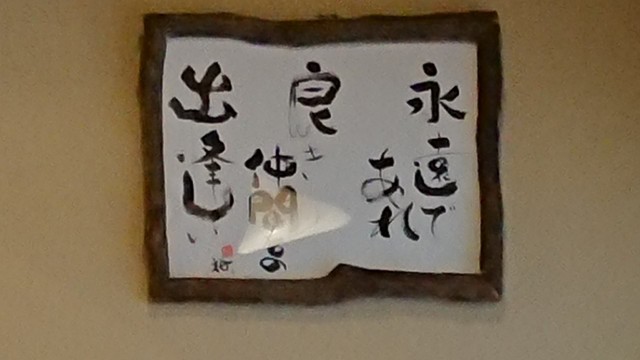 永遠で
あれ
良き
仲間の
出逢い